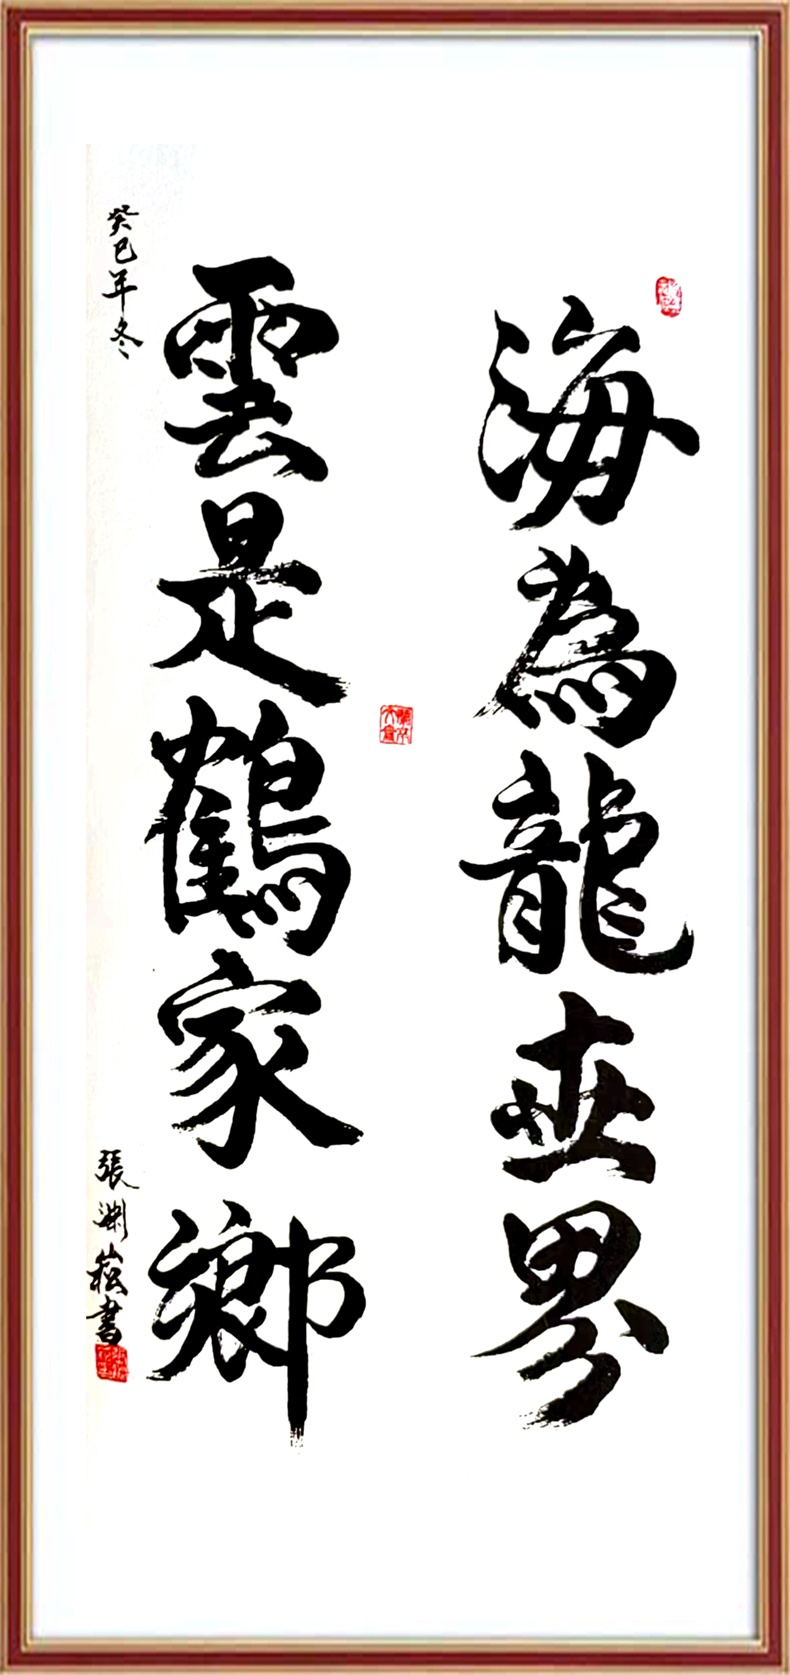 海為龍世界
雲是鶴家鄉
癸巳年冬
張渊崧書